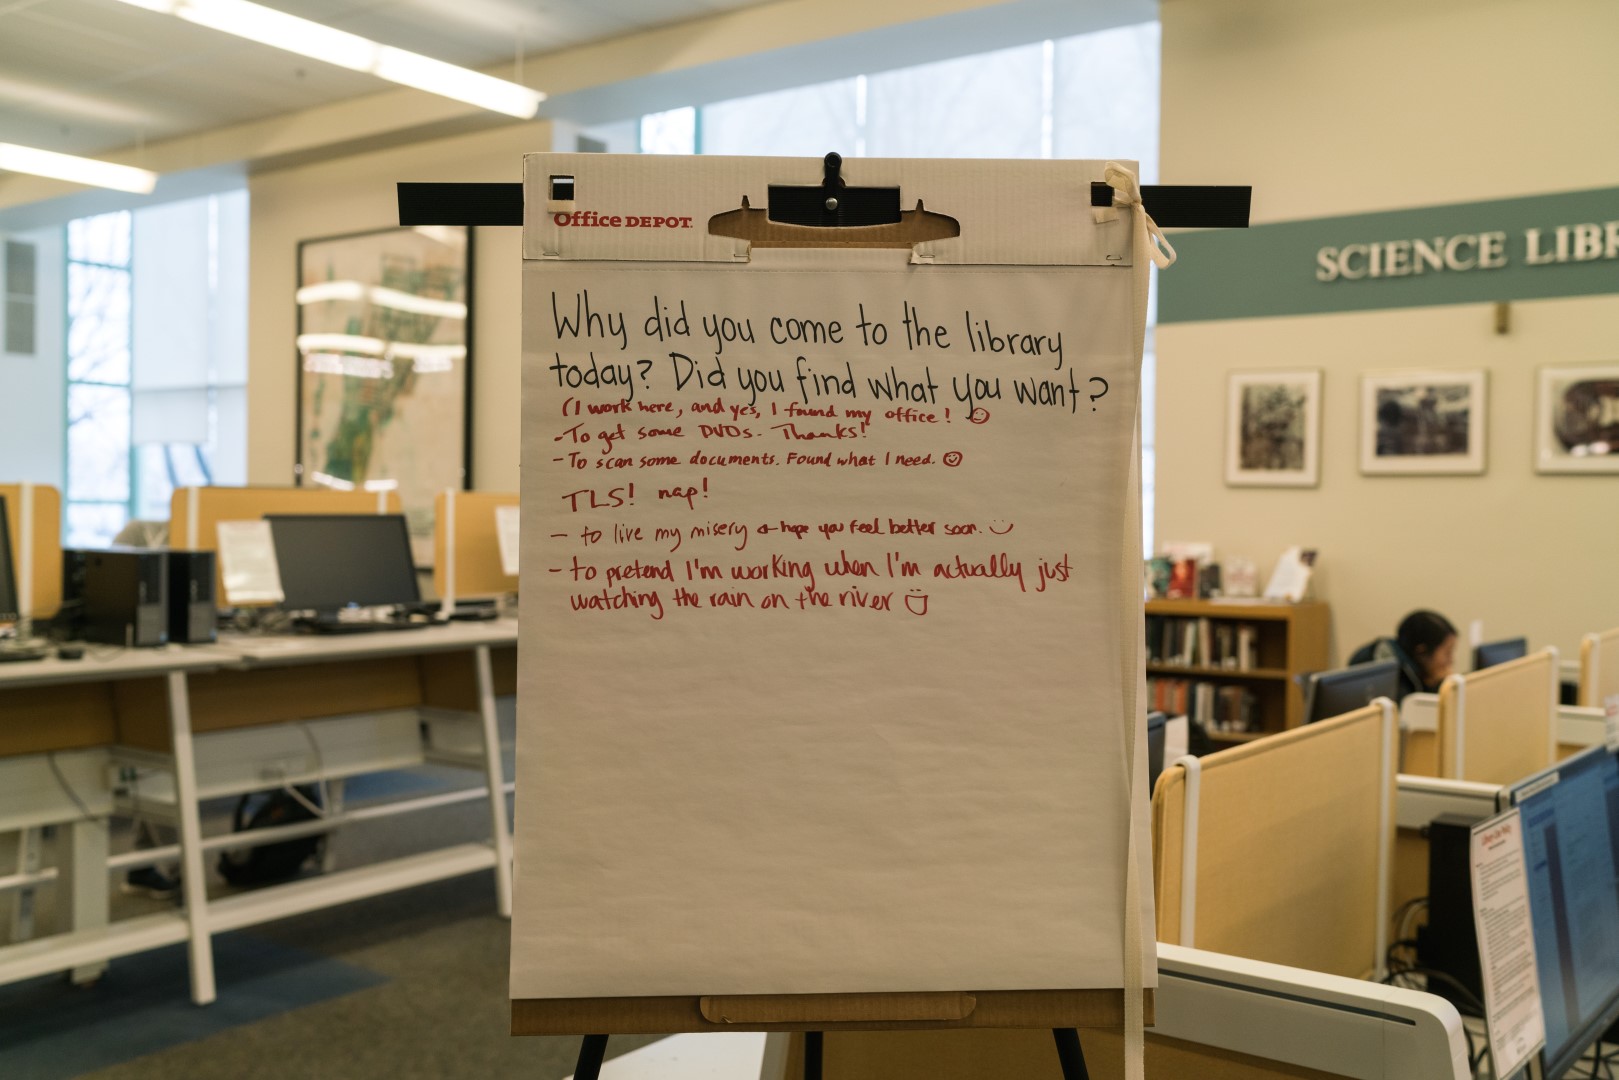 Office DEPOT.
SCIENCE
Why did you come to the library
today? Did you find what you want?
(I work here, and yes, I found my office! ☺
-To get some DVDs. Thanks!
- To scan some documents. Found what I need. ☺
TLS! nap!
- to live my misery ← hope you feel better soon. ☺
- to pretend I'm working when I'm actually just
watching the rain on the river ☺